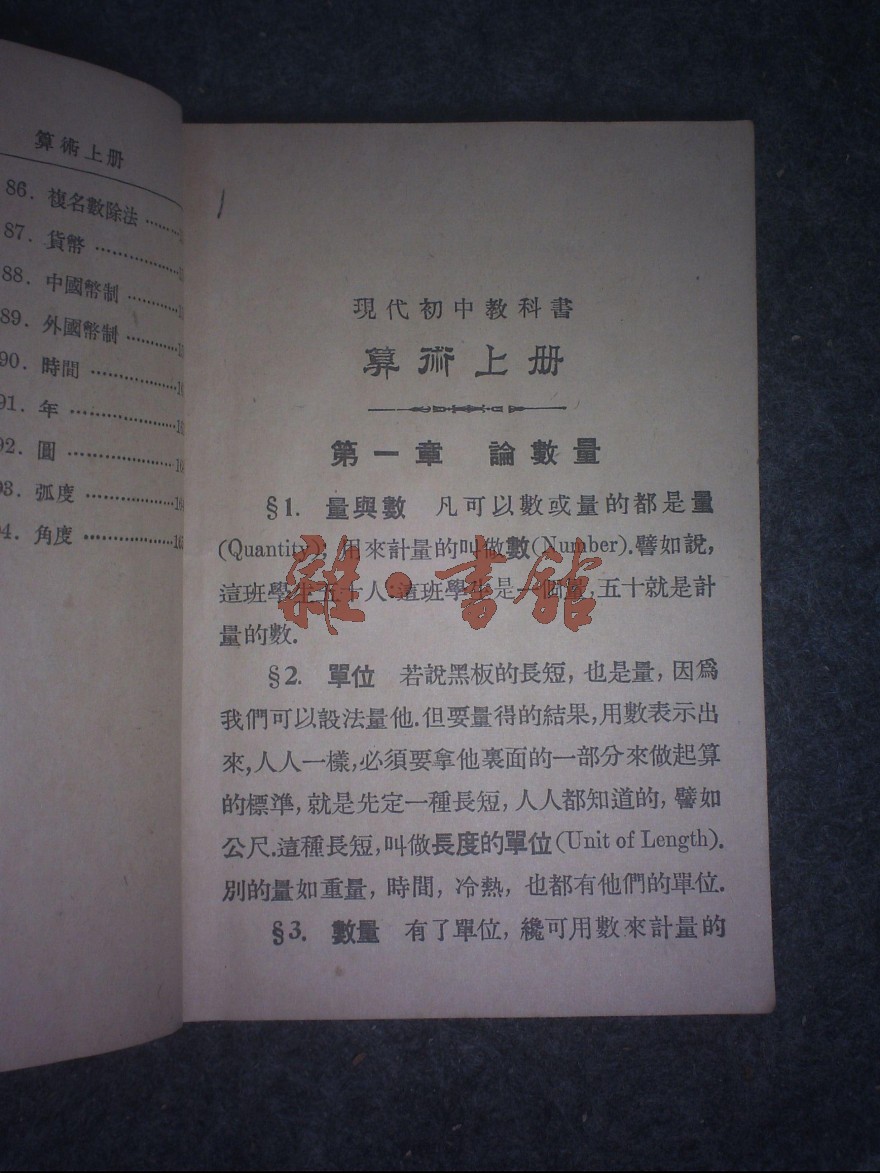 算術上册
86. 複名數除法
87. 貨幣
88. 中國幣制
89. 外國幣制
90. 時間
91. 年
92. 圓
93. 弧度
94. 角度
現代初中教科書
算術上册
第一章 論數量
§1. 量與數 凡可以數或量的都是量
(Quantity); 用來計量的叫做數(Number).譬如說,
這班學生五十人:這班學生是一個量,五十就是計
量的數.
§2. 單位 若說黑板的長短, 也是量, 因爲
我們可以設法量他.但要量得的結果,用數表示出
來,人人一樣,必須要拿他裏面的一部分來做起算
的標準, 就是先定一種長短, 人人都知道的, 譬如
公尺.這種長短,叫做長度的單位(Unit of Length).
別的量如重量, 時間, 冷熱, 也都有他們的單位.
§3. 數量 有了單位, 纔可用數來計量的
雜·書館